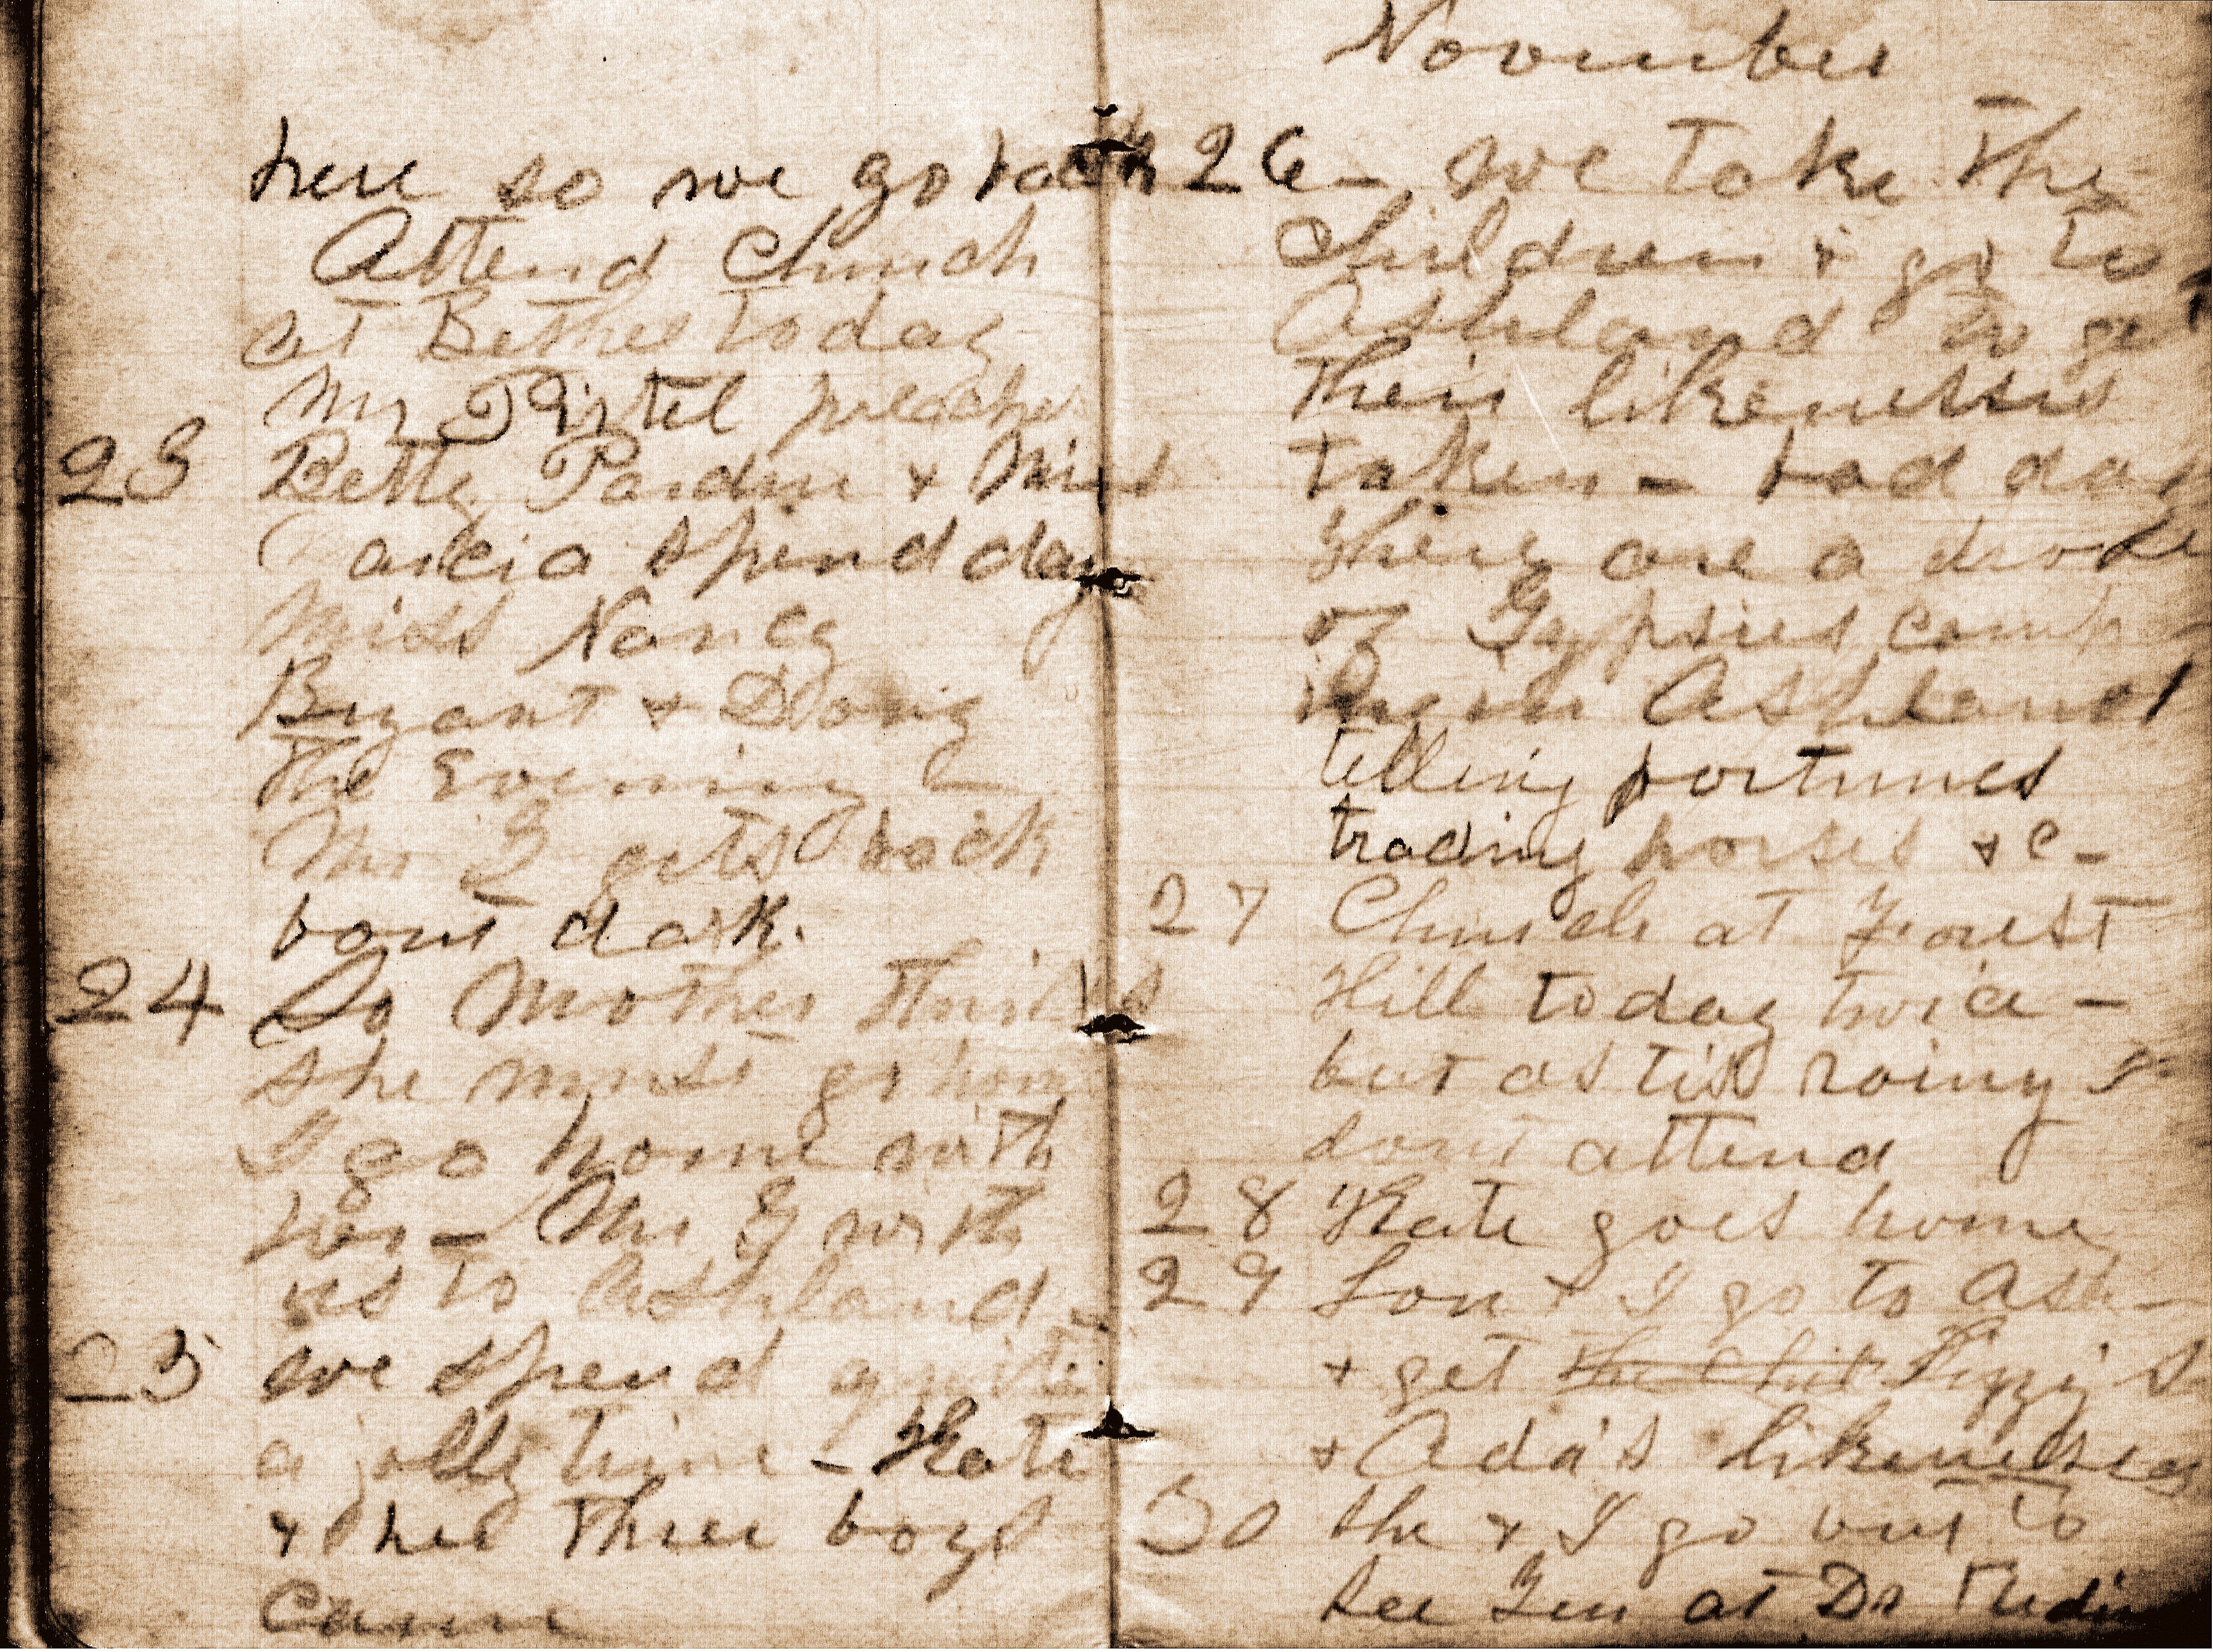 here so we go back
Attend Church
at Bethel today
Mr Pirtel preaches
23 Betty Pardue & Miss
spend day
Miss Nancy
Bryant &
the Evening
Mr G gets back
bout dark.
24 So Mother thinks
she must go home
I go home with
her - Mr G with
us to Ashland -
25 we spend quite
a jolly time - Kate
& her three boys
came
November
26 - we take the
Children & go to
Ashland to get
their likenesses
taken - bad day
There are a drove
of Gypsies comp-
ing in Ashland
telling fortunes
trading horses & c -
27 Church at Forest
Hill today twice -
but as tis rainy
dont attend
28 Kate goes home
29 Lon & I go to Ash -
& get the Chil Lizzy's
& Ada's likenesses
30 she & I go out to
see at Dr